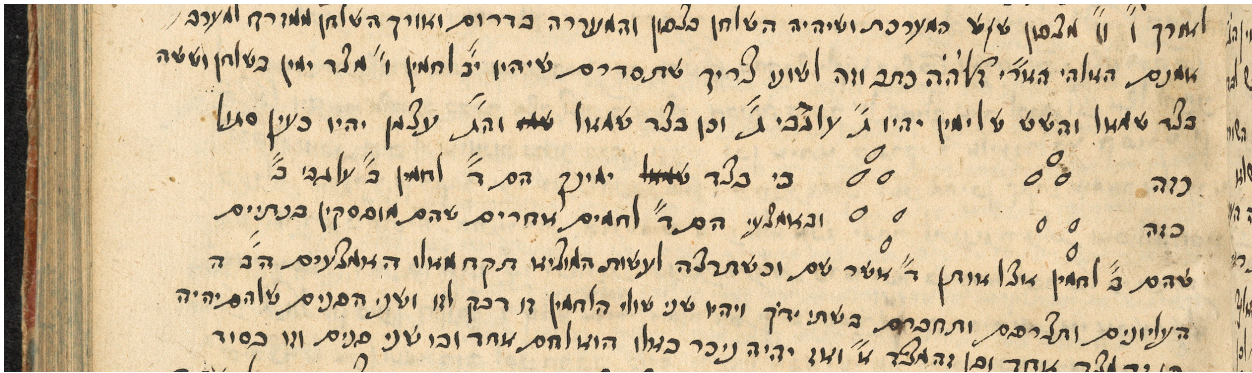 לאורך ו׳ ו׳ מצפון שזש המערכת ושיהיה השלחן בצפון והמנורה בדרום ואורך השלחן ממזרח ומערב
אמנם האלהי האר״י זלה״ה כתב וזה לשונו צריך שתסדרם שיהיו י״ב לחמין ו׳ מצד ימין בשלחן וששה
בצד שמאל והשש שלימין יהיו ג׳ על גבי ג׳ וכן בצד שמאל והג׳ עצמן יהיו כעין סגול
כזה כי בצד ימינך הם ד׳ לחמין ב׳ על גבי ב׳
כזה ובאמצעי הם ד׳ לחמים אחרים שהם מופסקין בנתיים
שהם ב׳ לחמין אצל אותן ד׳ אשר שם וכשתרצה לעשות המוציא תקח מאלו האמצעים הב׳ ה
העליונים ותצרפם ותחברם בשתי ידך ויהיו שני שולי הלחמין זו דבק לזו ושני הפנים שלהם יהיה
מצד אחד וכן מהצד א׳ ואז יהיה ניכר כאלו הוא לחם אחד ובו שני פנים וזו כסוד